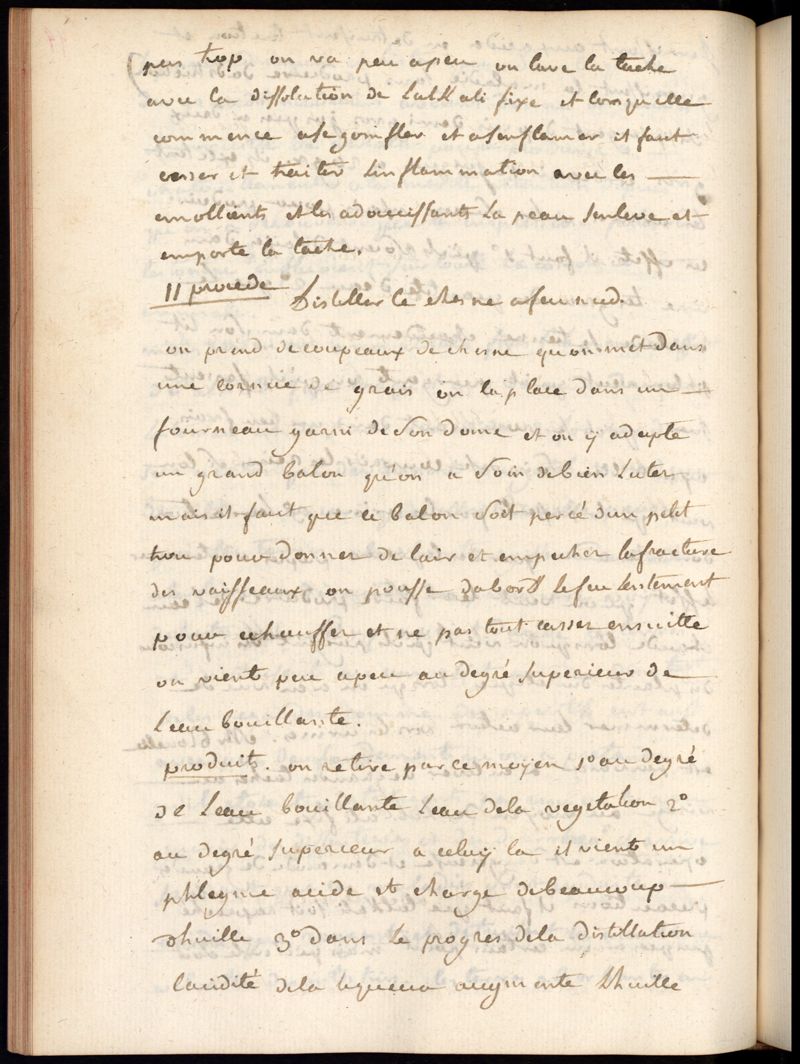 pas trop on va peu apeu on lave la tache
avec la dissolution de Lalkali fixe et lorsquelle
commence ase gonfler et asenflamer il faut
cesser et traiter Linflammation avec les
emollients et les adoucissants La peau senleve et
emporte la tache.
11 procede Distiller le chesne afeu nud.
on prend de coupeaux de chesne quon met dans
une cornue de grais on la place dans un
fourneau garni de son dome et on y adapte
un grand balon qu'on a soin de bien Luter
mais il faut que ce balon soit percé dun petit
trou pour donner de lair et empecher lafracture
des vaisseaux on pousse dabord le feu lentement
pour echauffer et ne pas tout casser ensuitte
on vient peu apeu au degré superieur de
Leau bouillante.
produits. on retire par ce moyen 1o au degré
de Leau bouillante Leau dela vegetation 2o
au degré superieur a celuy la il vient un
phlegme acide et charge de beaucoup
dhuille 3o dans le progres dela distillation
lacidité dela liqueur augmente Lhuille